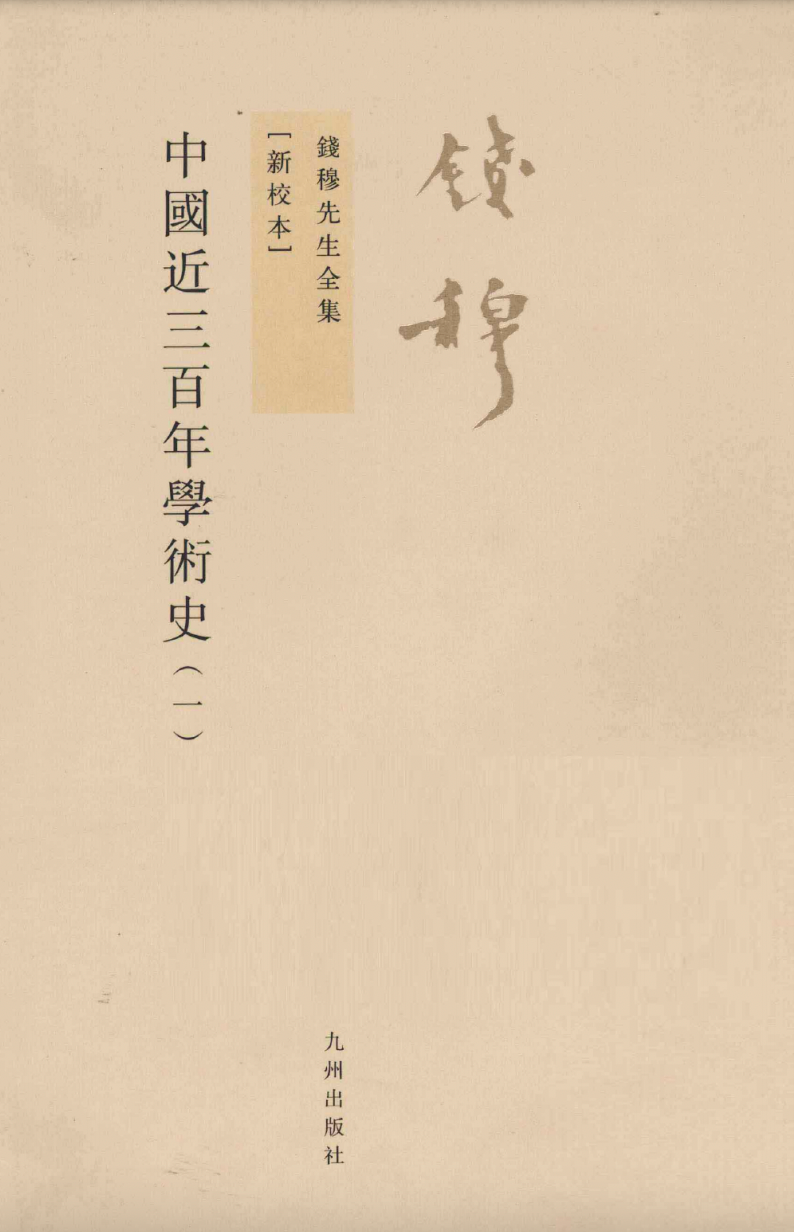 錢穆
錢穆先生全集
[新校本]
中國近三百年學術史(一)
九州出版社